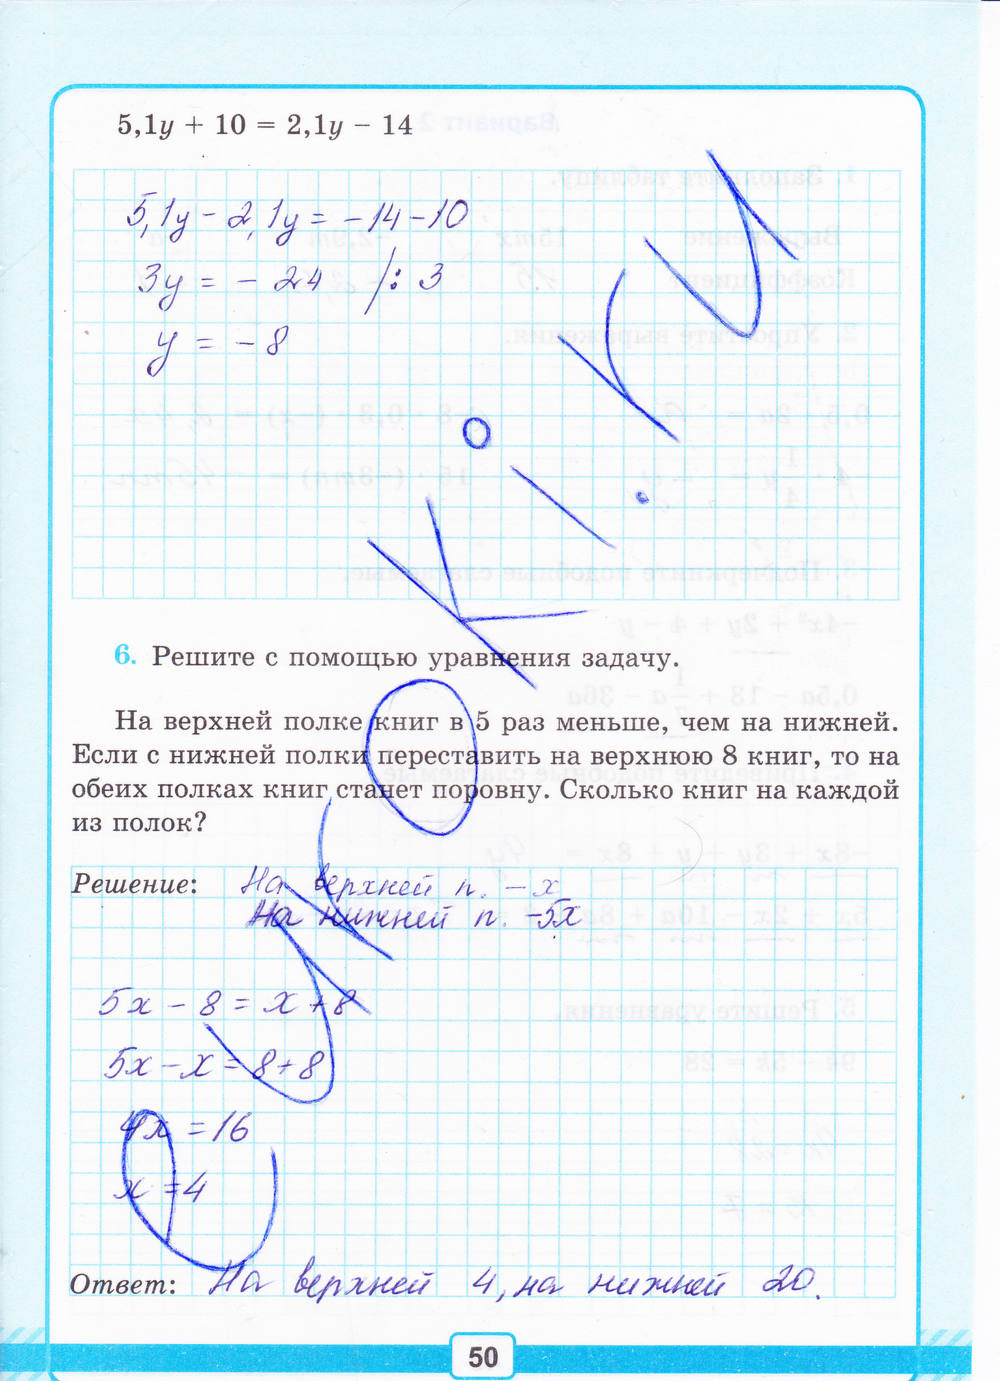 5,1y + 10 = 2,1y − 14
5,1y − 2,1y = −14−10
3y = − 24 /: 3
y = −8
6. Решите с помощью уравнения задачу.
На верхней полке книг в 5 раз меньше, чем на нижней.
Если с нижней полки переставить на верхнюю 8 книг, то на
обеих полках книг станет поровну. Сколько книг на каждой
из полок?
Решение: На верхней п. − x
На нижней п. −5x
5x − 8 = x + 8
5x − x = 8+8
4x = 16
x = 4
Ответ: На верхней 4, на нижней 20.
50